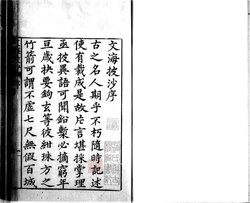 文海披沙序
古之名人期乎不朽隨時記述
使有載成是故片言堪採掌理
亟披異語可聞鉛槧必摘窮年
亘歲抉要鉤玄等彼紺珠方之
竹箭可謂不虛七尺無假百城